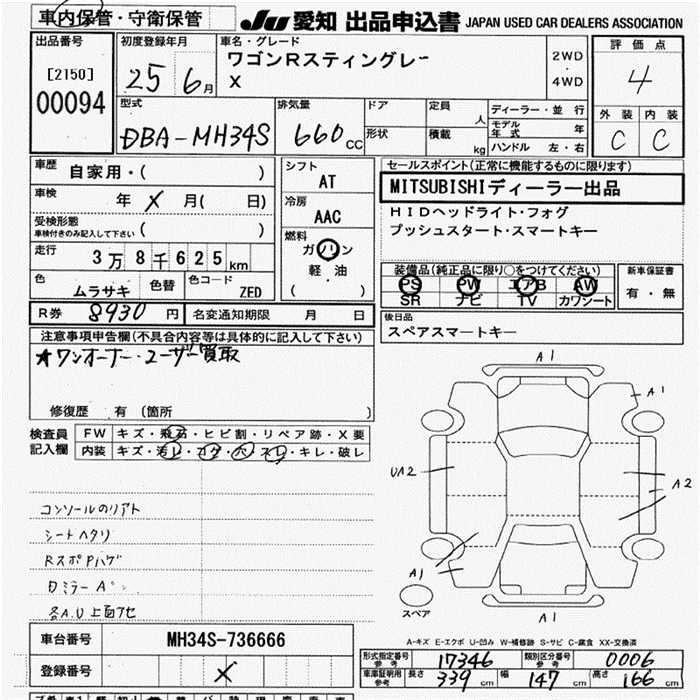 車内保管・守衛保管
JU 愛知 出品申込書 JAPAN USED CAR DEALERS ASSOCIATION
出品番号 [2150] 00094
初度登録年月 25 6月
車名・グレード ワゴンRスティングレー X
2WD・4WD
評価点 4
外装 C 内装 C
型式 DBA-MH34S
排気量 660cc
ドア 形状
定員 人 積載 kg
ディーラー・並行
モデル年式 年
ハンドル 左・右
車歴 自家用・( )
車検 年 X 月( 日)
受検形態 車検付きのみ記入して下さい ( )
走行 3万8千625km
色 ムラサキ 色替 色コード ZED
シフト AT
冷房 AAC
燃料 ガソリン 軽・油 ( )
セールスポイント(正常に機能するものに限ります)
MITSUBISHIディーラー出品
HIDヘッドライト・フォグ
プッシュスタート・スマートキー
装備品(純正品に限り○をつけてください)
PS PW エアB AW
SR ナビ TV カワシート
新車保証書 有・無
R券 8930円 名変通知期限 月 日
後日品
スペアスマートキー
注意事項申告欄(不具合内容等は具体的に記入して下さい)
★ワンオーナー・ユーザー買取
修復歴 有 (箇所 )
検査員記入欄
FW キズ・飛石・ヒビ割・リペア跡・X要
内装 キズ・汚レ・コゲ・穴・スレ・キレ・破レ
コンソールのリアト
シートヘタリ
RスポPハゲ
各A.U 上面アセ
A1
A1
UA2
A2
A1
A1
スペア
A-キズ E-エクボ U-凹み W-補修跡 S-サビ C-腐食 XX-交換済
車台番号 MH34S-736666
登録番号 X
形式指定番号 参考 17346 類別区分番号 参考 0006
車庫証明用 参考 長さ 339cm 幅 147cm 高さ 166cm